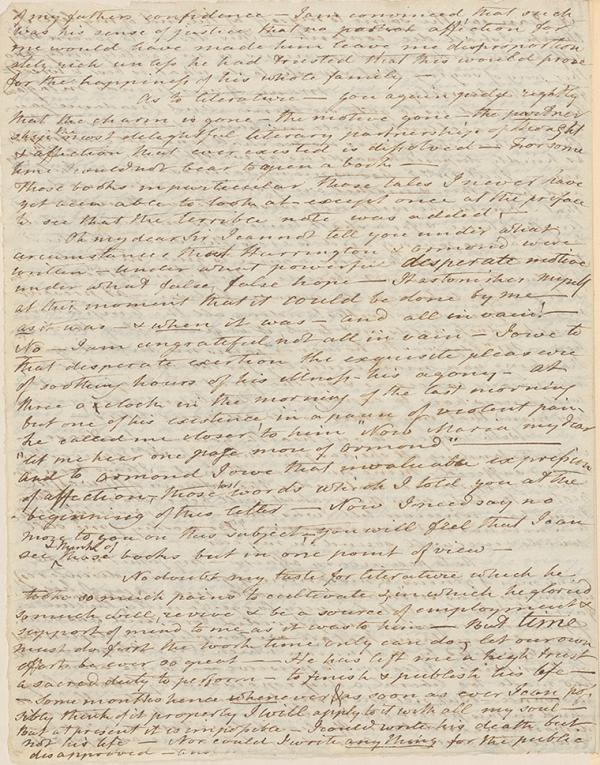 of my father's confidence — I am convinced that such
was his sense of justice that no partial affection for
me would have made him leave me disproportion
ately rich unless he had trusted that this would prove
for the happiness of his whole family —
As to literature — you again judge rightly
that the charm is gone — the motive gone — the partner
ship the most delightful literary partnership of thought
& affection that ever existed is dissolved — For some
time I could not bear to open a book —
Those books in particular those tales I never have
yet been able to look at except once at the preface
to see that the terrible note was added —
Oh my dear Sir, I cannot tell you under what
circumstances Harrington & Ormond were
written — under what powerful desperate motive
under what false, false hope — It astonishes myself
at this moment that it could be done by me
as it was — & when it was — and all in vain!
No — I am ungrateful not all in vain — I owe to
that desperate exertion the exquisite pleasure
of soothing hours of his illness — his agony — At
three o'clock in the morning of the last morning
but one of his existence, in a pause of violent pain
he called me closer to him "Now Maria my dear
"let me hear one page more of Ormond" —
and to Ormond I owe that invaluable expression
of affection, those last words which I told you at the
beginning of this letter — Now I need say no
more to you on this subject, you will feel that I can
see & think of those books but in one point of view —
No doubt my taste for literature which he
took so much pains to cultivate & in which he gloried
so much, will, revive & be a source of employment &
support of mind to me as it was to him — But time
must do first the work time only can do, let our own
efforts be ever so great — He has left me a high trust
a sacred duty to perform — to finish & publish his life —
— Some months hence whenever as soon as ever I can pos
sibly think of it properly I will apply to it with all my soul —
But at present it is impossible — I could write his death but
not his life — Nor could I write anything for the public
disapproved — and